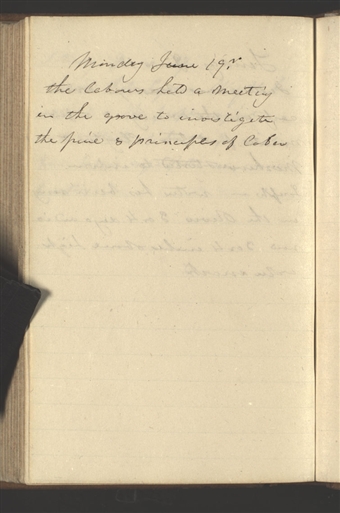 Monday June 19th
the Labours held a Meeting
in the grove to investigate
the price & principles of Labor